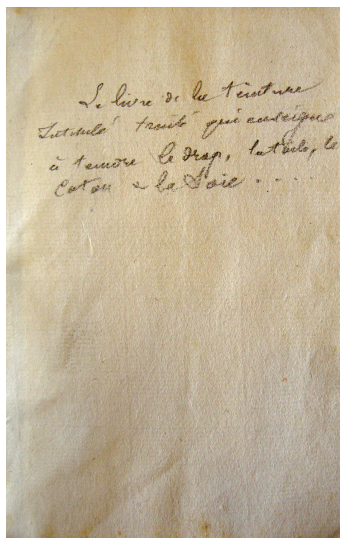 Le livre de la teinture
Intitulé qui enseigne
à teindre le drap, la toile, le
Coton & la Soie . . . .